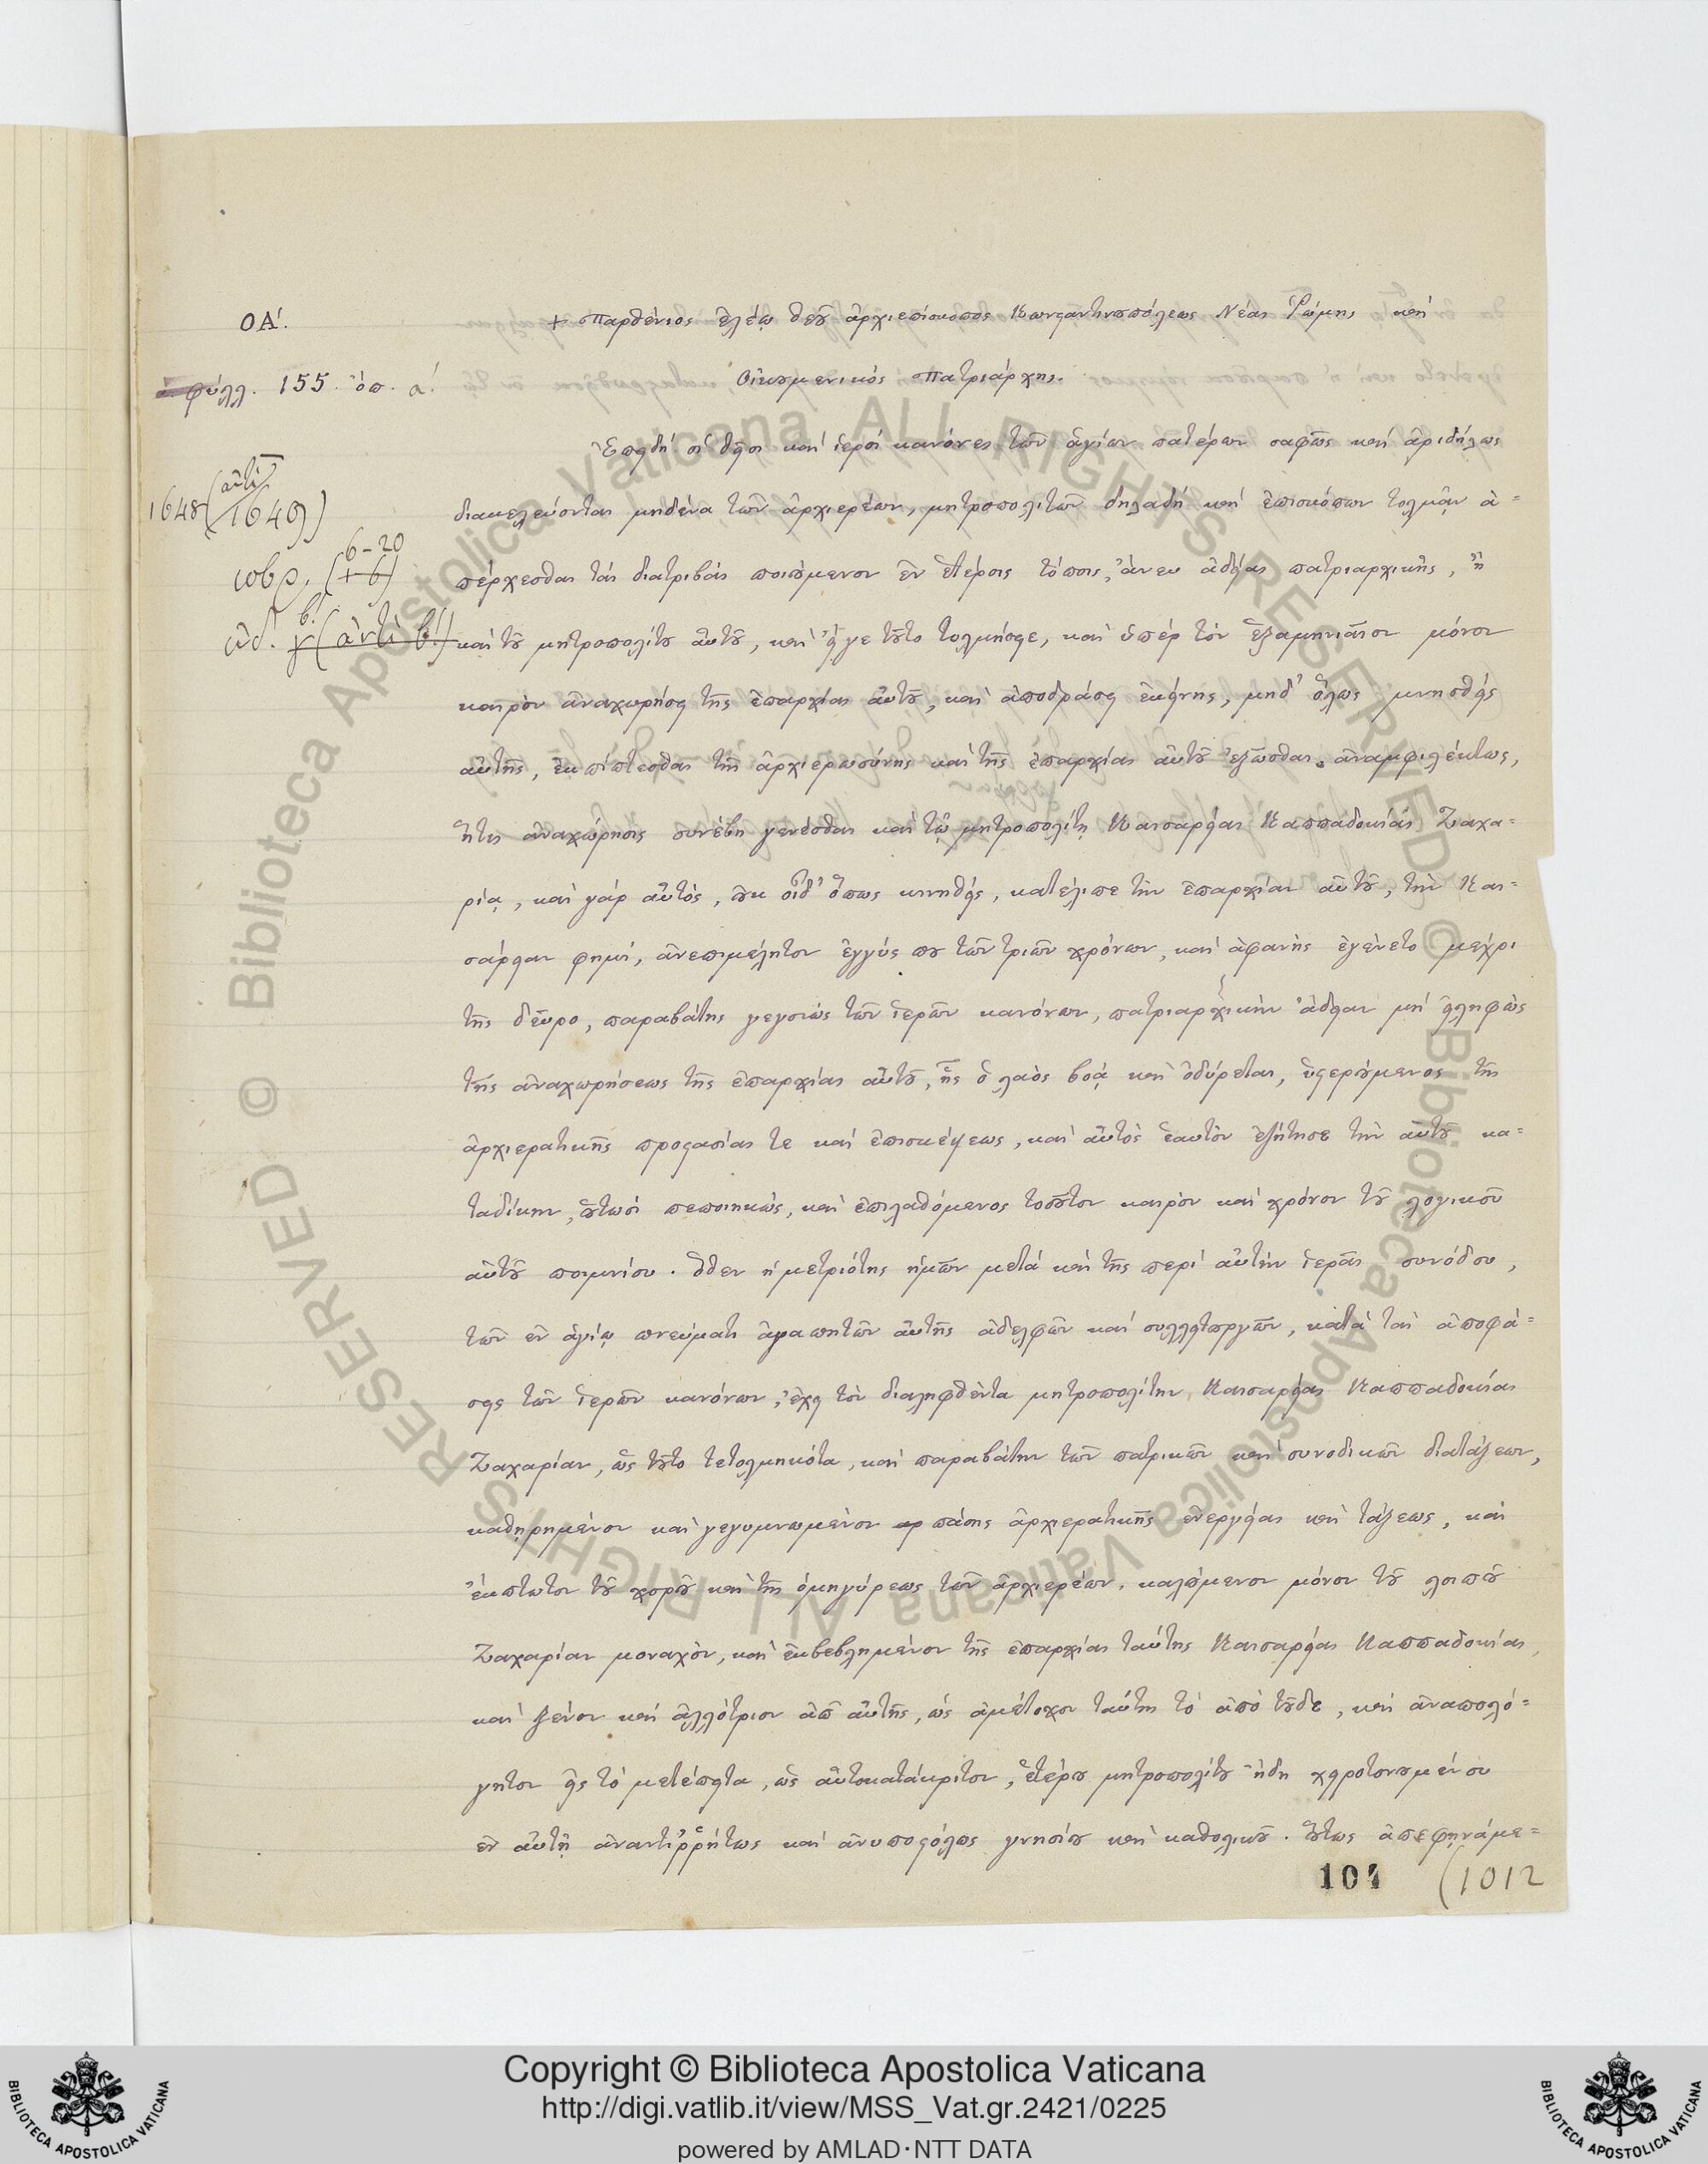 ΟΑ΄.
φύλλ. 155. ὄπ. α΄.
1648 (ἀντὶ 1649)
6-20
ἰνδ. γ (ἀντὶ β΄)
β΄.
+ Παρθένιος ἐλέῳ θεοῦ ἀρχιεπίσκοπος Κωνσταντινουπόλεως Νέας Ῥώμης καὶ
Οἰκουμενικὸς Πατριάρχης.
Ἐπειδὴ οἱ θεῖοι καὶ ἱεροὶ κανόνες τῶν ἁγίων πατέρων σαφῶς καὶ ἀριδήλως
διακελεύονται μηδένα τῶν ἀρχιερέων, μητροπολιτῶν δηλαδὴ καὶ ἐπισκόπων τολμᾷν ἀ-
πέρχεσθαι τὰς διατριβὰς ποιούμενον ἐν ἑτέροις τόποις, ἄνευ ἀδείας πατριαρχικῆς, ἢ
καὶ τοῦ μητροπολίτου αὐτοῦ, καὶ εἴγε τοῦτο τολμήσειε, καὶ ὑπὲρ τὸν ἑξαμηνιαῖον μόνον
καιρὸν ἀναχωρήσῃ τῆς ἐπαρχίας αὐτοῦ, καὶ ἀποδράσῃ ἐκείνης, μηδ' ὅλως μνησθεὶς
αὐτῆς, ἐκπίπτεσθαι τῆς ἀρχιερωσύνης καὶ τῆς ἐπαρχίας αὐτοῦ ἐξῶσθαι ἀναμφιλέκτως,
ἥτις ἀναχώρησις συνέβη γενέσθαι καὶ τῷ μητροπολίτῃ Καισαρείας Καππαδοκίας Ζαχα-
ρίᾳ, καὶ γὰρ αὐτὸς, οὐκ οἶδ' ὅπως κινηθεὶς, κατέλιπε τὴν ἐπαρχίαν αὐτοῦ, τὴν Και-
σάρειαν φημὶ, ἀνεπιμέλητον ἐγγύς που τῶν τριῶν χρόνων, καὶ ἀφανὴς ἐγένετο μέχρι
τῆς δεῦρο, παραβάτης γεγονὼς τῶν ἱερῶν κανόνων, πατριαρχικὴν ἄδειαν μὴ εἰληφὼς
τῆς ἀναχωρήσεως τῆς ἐπαρχίας αὐτοῦ, ἧς ὁ λαὸς βοᾷ καὶ ὀδύρεται, ὑστερούμενος τῆς
ἀρχιερατικῆς προστασίας τε καὶ ἐπισκέψεως, καὶ αὐτὸς ἑαυτὸν ἐζήτησε τὴν αὐτοῦ κα-
ταδίκην, οὑτωσὶ πεποιηκὼς, καὶ ἐπιλαθόμενος τοσοῦτον καιρὸν καὶ χρόνον τοῦ λογικοῦ
αὐτοῦ ποιμνίου. Ὅθεν ἡ μετριότης ἡμῶν μετὰ καὶ τῆς περὶ αὐτὴν ἱερᾶς συνόδου,
τῶν ἐν ἁγίῳ πνεύματι ἀγαπητῶν αὐτῆς ἀδελφῶν καὶ συλλειτουργῶν, κατὰ τὰς ἀποφά-
σεις τῶν ἱερῶν κανόνων, ἔχει τὸν διαληφθέντα μητροπολίτην Καισαρείας Καππαδοκίας
Ζαχαρίαν, ὡς τοῦτο τετολμηκότα, καὶ παραβάτην τῶν πατρικῶν καὶ συνοδικῶν διατάξεων,
καθῃρημένον καὶ γεγυμνωμένον πάσης ἀρχιερατικῆς ἐνεργείας καὶ τάξεως, καὶ
ἔκπτωτον τοῦ χοροῦ καὶ τῆς ὁμηγύρεως τῶν ἀρχιερέων, καλούμενον μόνον τοῦ λοιποῦ
Ζαχαρίαν μοναχὸν, καὶ ἐκβεβλημένον τῆς ἐπαρχίας ταύτης Καισαρείας Καππαδοκίας,
καὶ ξένον καὶ ἀλλότριον ἀπ' αὐτῆς, ὡς ἀμέτοχον ταύτης τὸ ἀπὸ τοῦδε, καὶ ἀναπολό-
γητον εἰς τὸ μετέπειτα, ὡς αὐτοκατάκριτον, ἑτέρου μητροπολίτου ἤδη χειροτονουμένου
ἐν αὐτῇ ἀναντιῤῥήτως καὶ ἀνυποστόλως γνησίου καὶ καθολικοῦ. Οὕτως ἀπεφηνάμε-
104 (1012
© Biblioteca Apostolica Vaticana ALL RIGHTS RESERVED © Biblioteca Apostolica Vaticana ALL RIGHTS RESERVED
Copyright © Biblioteca Apostolica Vaticana
http://digi.vatlib.it/view/MSS_Vat.gr.2421/0225
powered by AMLAD·NTT DATA
BIBLIOTECA APOSTOLICA VATICANA
BIBLIOTECA APOSTOLICA VATICANA